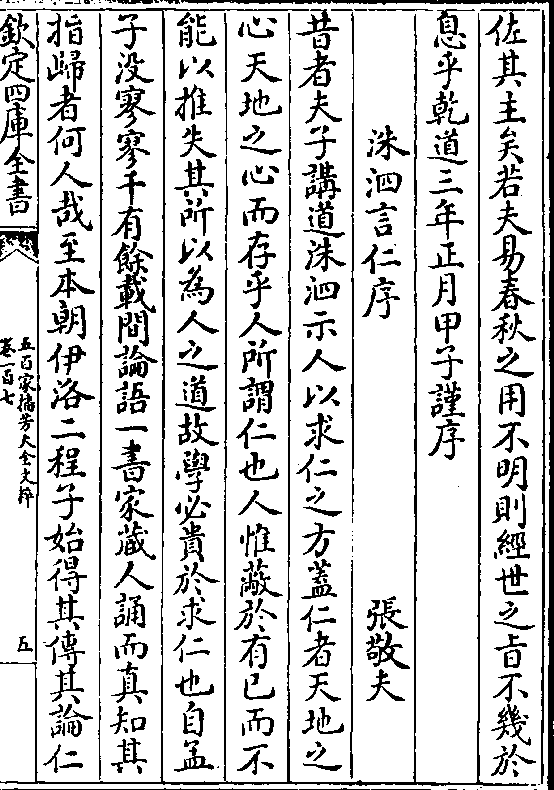 佐其主矣若夫易春秋之用不明則經世之旨不幾於
息乎乾道三年正月甲子謹序
洙泗言仁序 張敬夫
昔者夫子講道洙泗示人以求仁之方蓋仁者天地之
心天地之心而存乎人所謂仁也人惟蔽於有已而不
能以推失其所以為人之道故學必貴於求仁也自孟
子没寥寥千有餘載間論語一書家藏人誦而真知其
指歸者何人哉至本朝伊洛二程子始得其傳其論仁
欽定四庫全書
五百家播芳大全文粹
卷一百七
五